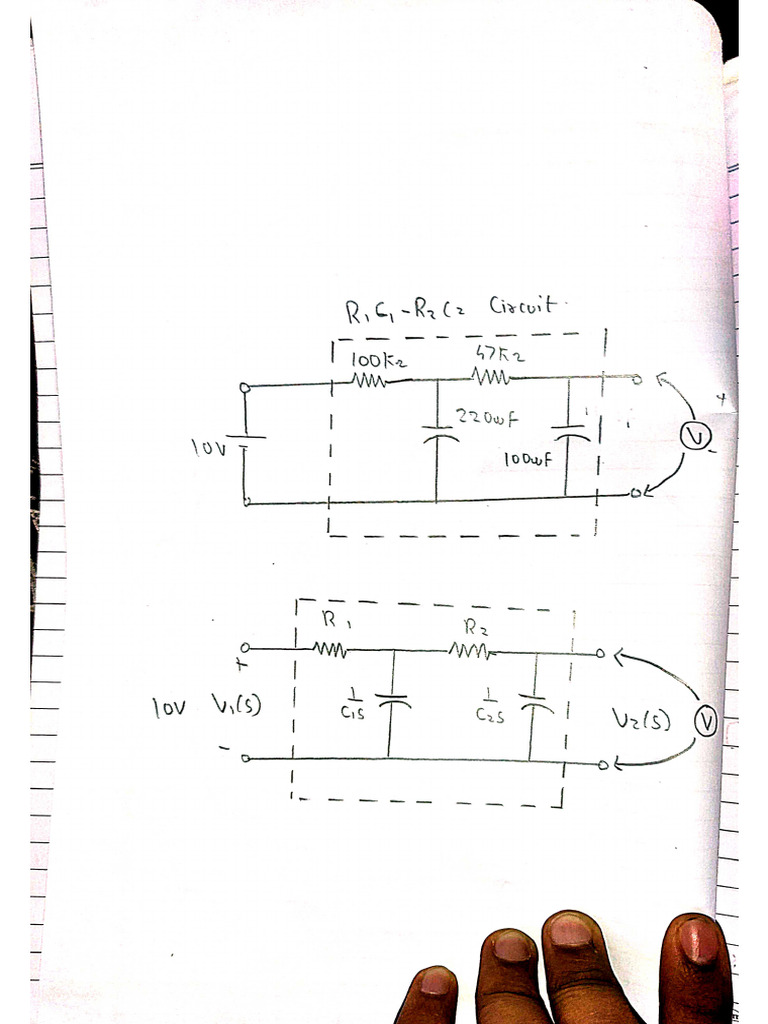 R₁C₁-R₂C₂ Circuit.
100KΩ 47KΩ
220uF
10V V -
100uF
R₁ R₂
+
10V V₁(s) 1/C₁s 1/C₂s V₂(s) V
-